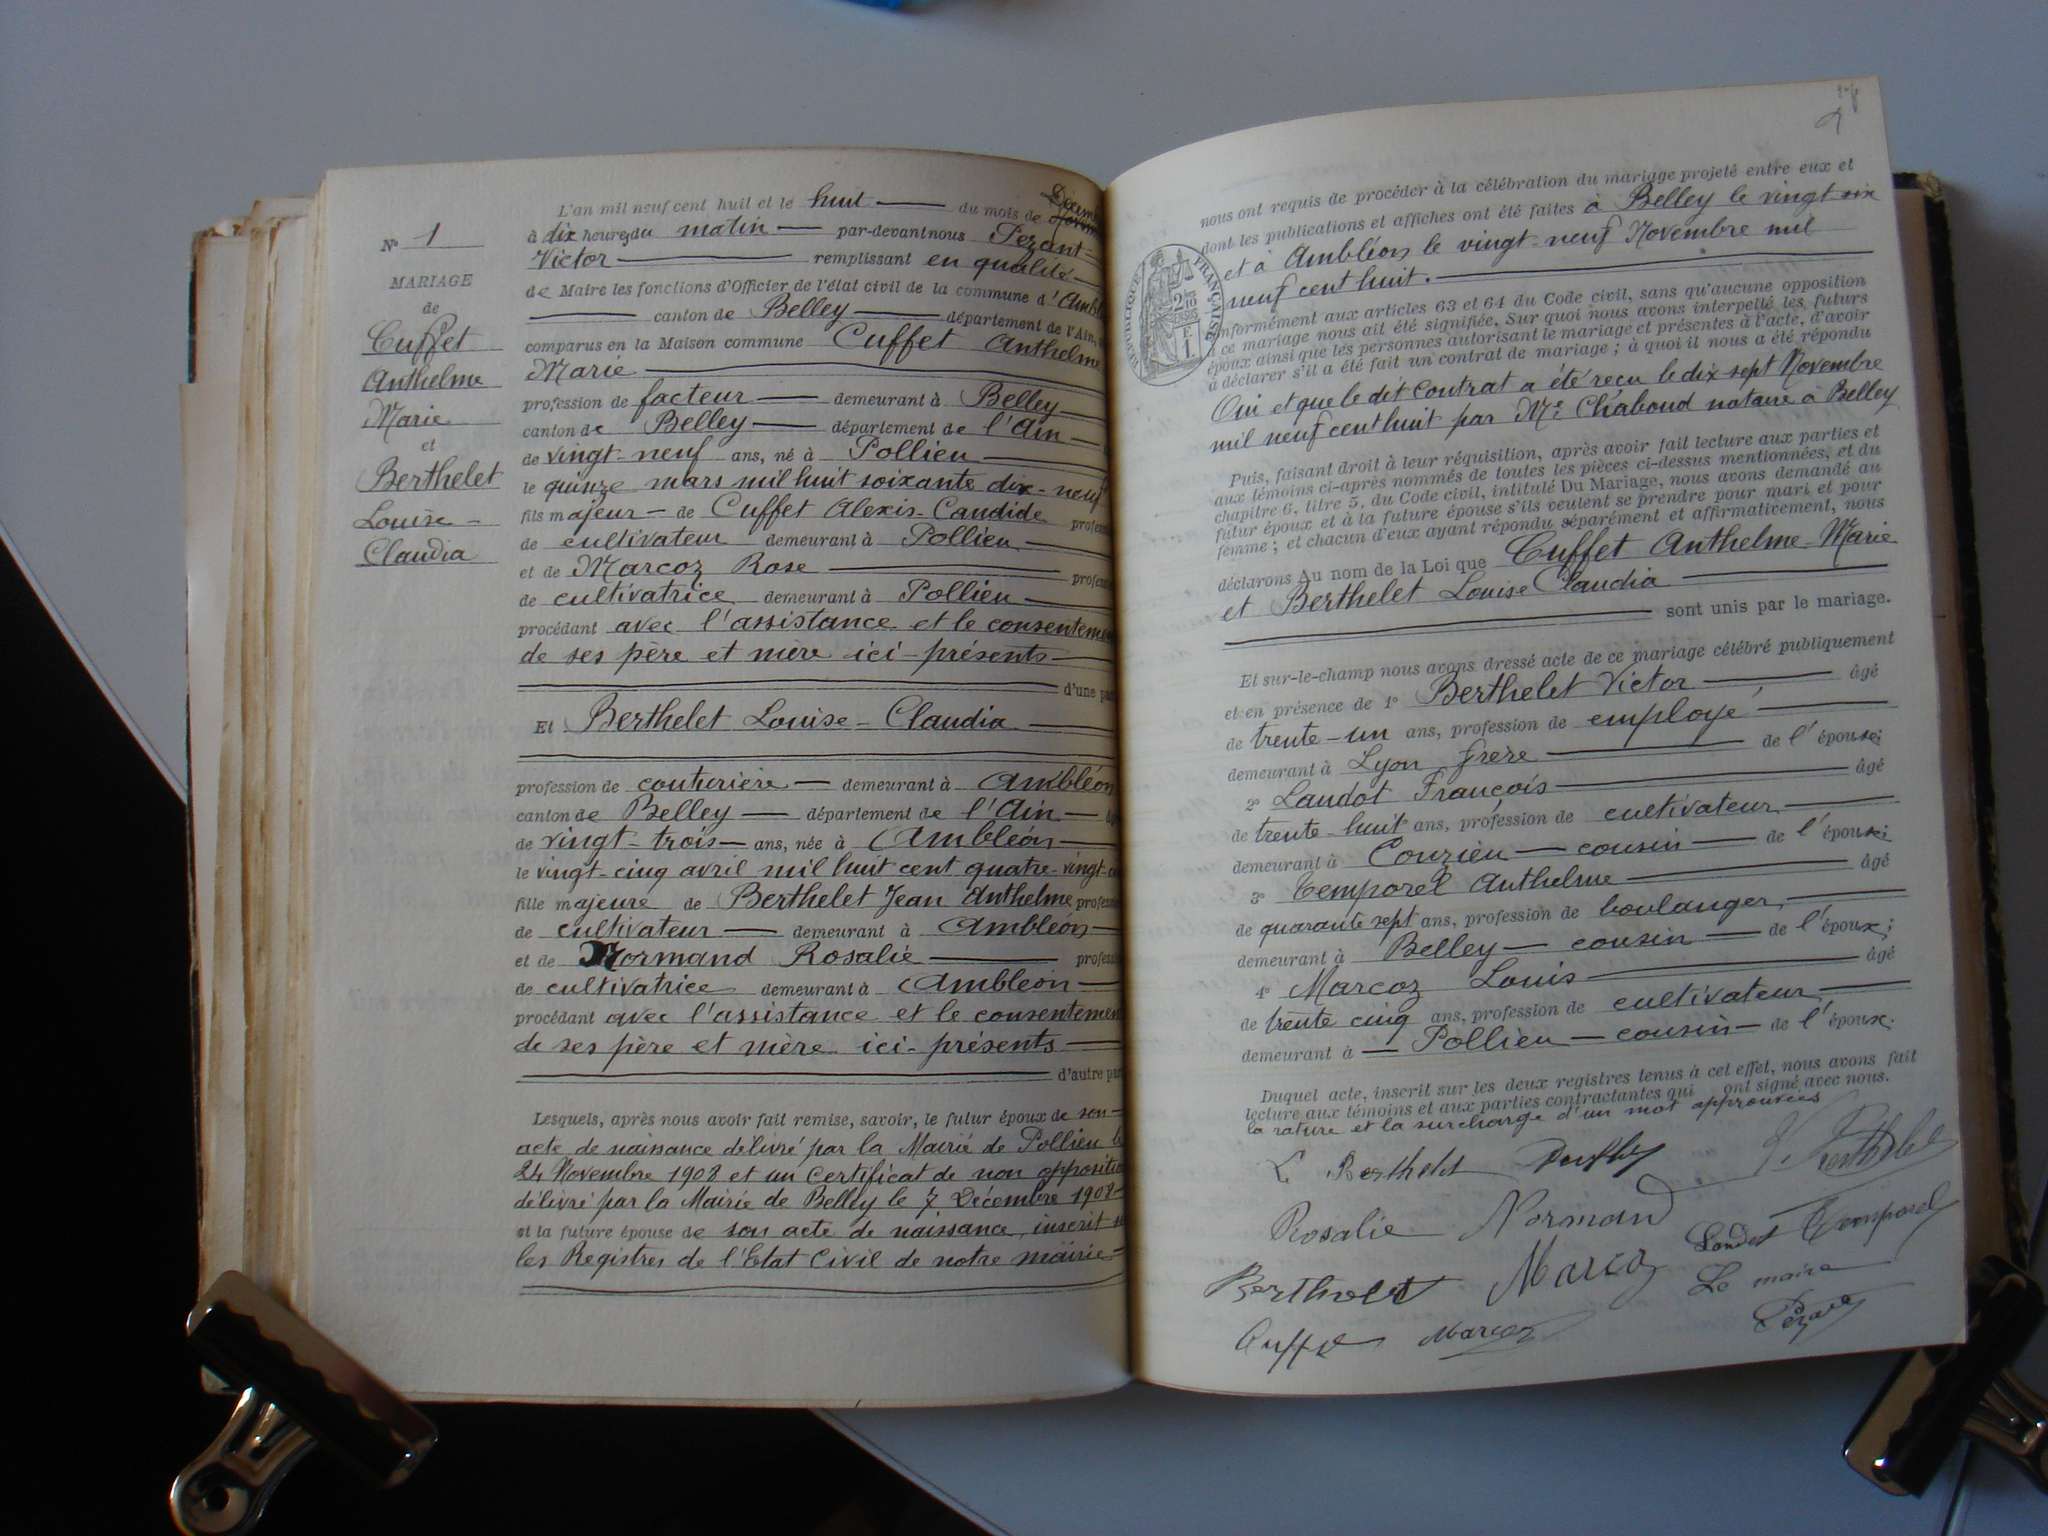 N° 1
MARIAGE
de
Cuffet
Anthelme
Marie
et
Berthelet
Louise -
Claudia
L'an mil neuf cent huit et le huit du mois de
à dix heures du matin par-devant nous Pezant
Victor remplissant en qualité
de Maire les fonctions d'Officier de l'état civil de la commune d'Amb
canton de Belley département de l'Ain,
comparus en la Maison commune Cuffet Anthelme
Marie
profession de facteur demeurant à Belley
canton de Belley département de l'Ain
de vingt-neuf ans, né à Pollieu
le quinze mars mil huit soixante dix-neuf
fils majeur - de Cuffet Alexis-Candide profess
de cultivateur demeurant à Pollieu
et de Marcoz Rose profess
de cultivatrice demeurant à Pollieu
procédant avec l'assistance et le consenteme
de ses père et mère ici-présents
d'une par
Et Berthelet Louise - Claudia
profession de couturière demeurant à Ambléon
canton de Belley département de l'Ain
de vingt-trois ans, née à Ambléon
le vingt-cinq avril mil huit cent quatre-vingt-
fille majeure de Berthelet Jean Anthelme profess
de cultivateur demeurant à Ambléon
et de Normand Rosalie profess
de cultivatrice demeurant à Ambléon
procédant avec l'assistance et le consentemen
de ses père et mère ici-présents
d'autre par
Lesquels, après nous avoir fait remise, savoir, le futur époux de son
acte de naissance délivré par la Mairie de Pollieu le
24 Novembre 1908 et un certificat de non oppositio
délivré par la Mairie de Belley le 7 Décembre 1908
et la future épouse de son acte de naissance, inscrit s
les Registres de l'Etat Civil de notre mairie
2
nous ont requis de procéder à la célébration du mariage projeté entre eux et
dont les publications et affiches ont été faites à Belley le vingt six
et à Ambléon le vingt-neuf Novembre mil
neuf cent huit.
RÉPUBLIQUE FRANÇAISE
2
conformément aux articles 63 et 64 du Code civil, sans qu'aucune opposition
à ce mariage nous ait été signifiée. Sur quoi nous avons interpellé les futurs
époux ainsi que les personnes autorisant le mariage et présentes à l'acte, d'avoir
à déclarer s'il a été fait un contrat de mariage ; à quoi il nous a été répondu
Oui et que le dit contrat a été reçu le dix sept Novembre
mil neuf cent huit par Me Chaboud notaire à Belley
Puis, faisant droit à leur réquisition, après avoir fait lecture aux parties et
aux témoins ci-après nommés de toutes les pièces ci-dessus mentionnées, et du
chapitre 6, titre 5, du Code civil, intitulé Du Mariage, nous avons demandé au
futur époux et à la future épouse s'ils veulent se prendre pour mari et pour
femme ; et chacun d'eux ayant répondu séparément et affirmativement, nous
déclarons Au nom de la Loi que Cuffet Anthelme Marie
et Berthelet Louise Claudia
sont unis par le mariage.
Et sur-le-champ nous avons dressé acte de ce mariage célébré publiquement
et en présence de 1° Berthelet Victor âgé
de trente-un ans, profession de employé
demeurant à Lyon frère de l'épouse;
2° Landot François âgé
de trente-huit ans, profession de cultivateur
demeurant à Conzieu - cousin - de l'épouse;
3° Temporel Anthelme âgé
de quarante sept ans, profession de boulanger
demeurant à Belley - cousin - de l'époux;
4° Marcoz Louis âgé
de trente cinq ans, profession de cultivateur
demeurant à - Pollieu - cousin - de l'époux.
Duquel acte, inscrit sur les deux registres tenus à cet effet, nous avons fait
lecture aux témoins et aux parties contractantes qui ont signé avec nous.
la rature et la surcharge d'un mot approuvées
L Berthelet Berthelet
Rosalie Normand Landot Temporel
Berthelet Marcoz Le maire
Cuffet Marcoz Pezant